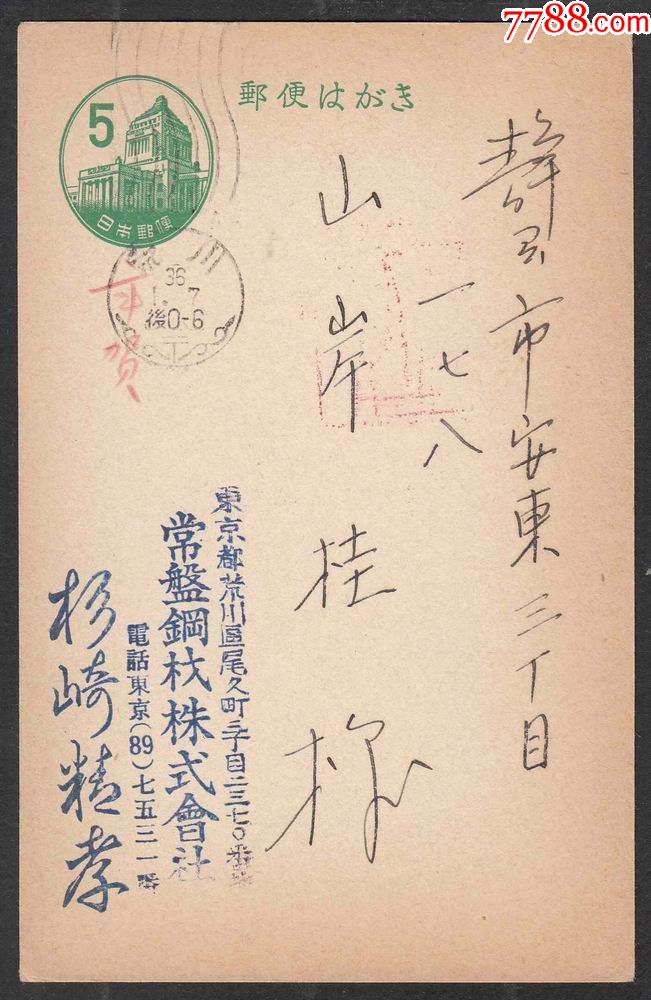 7788.com
郵便はがき
5
日本郵便
荒川
36
1. 7
後0-6
年賀
静岡市安東三丁目
一七八
山岸桂様
東京都荒川區尾久町三丁目二三七〇番地
常盤鋼材株式會社
電話東京(89)七五三一番
杉崎精孝